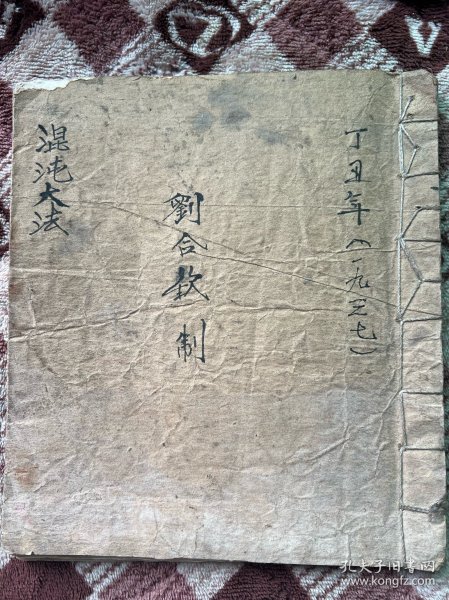 丁丑年(一九三七)
劉合欽制
混沌大法
孔夫子旧书网
www.kongfz.com